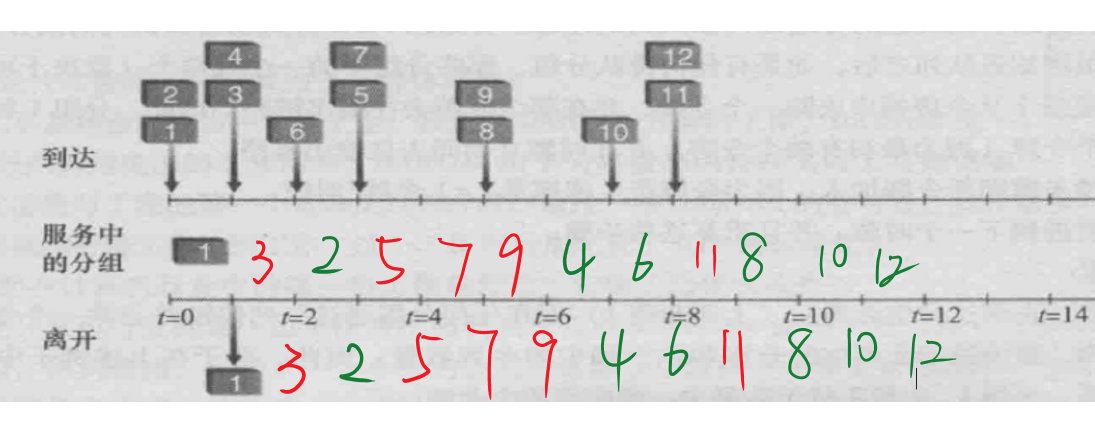 4 7 12
2 3 5 9 11
1 6 8 10
到达
服务中
的分组
1 3 2 5 7 9 4 6 11 8 10 12
t=0 t=2 t=4 t=6 t=8 t=10 t=12 t=14
离开
1 3 2 5 7 9 4 6 11 8 10 12